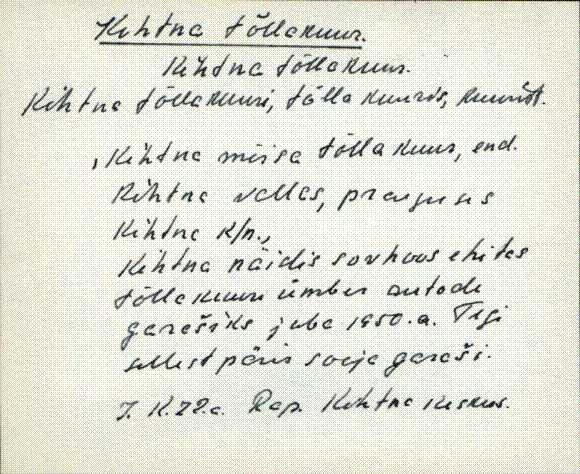 Kehtna tõllakuur.
Kehtna tõllakuur.
Kehtna tõllakuuri, tõllakuuris, kuurist.
, Kehtna mõisa tõllakuur, end.
Kehtna vallas, praeguses
Kehtna k/n.,
Kehtna näidis sovhoos ehitas
tõllakuuri ümber autode
garašiks juba 1950.a. Tegi
sellest päris sooja garaši.
J. K. 72.a. Rap. Kehtna keskus.